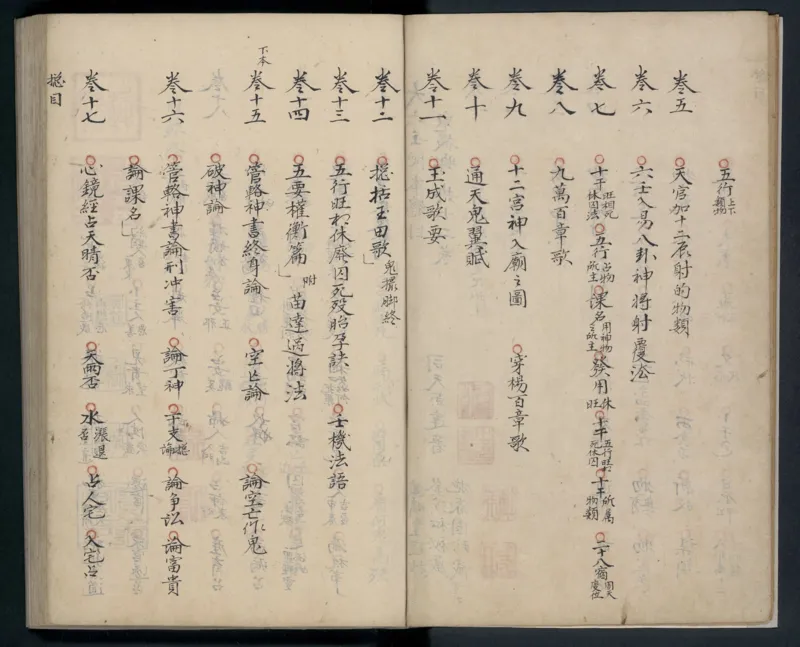 五行 上下 類物
卷五
天宮加十二辰射的物類
卷六
六壬入易八卦神將射覆法
卷七
十干 旺相死休囚法 五行 占物所主 課名 用神物所主 發用 休旺 十干 五行旺相死休囚 十干 所屬物類 二十八宿
卷八
九萬百章歌
卷九
十二宮神入廟之圖 穿楊百章歌
卷十
通天鬼翼賦
卷十一
玉成歌要
卷十二
揔括玉田歌 鬼撮脚終
卷十三
五行旺相休廢囚死歿胎孕訣 壬機法語
卷十四
五要權衡篇 附 苗達過將法
下本
卷十五
管輅神書終身論 空亡論 論空亡作鬼
破神論
卷十六
管輅神書論刑冲害 論丁神 干支 論爭訟 論富貴
論課名
卷十七
心鏡經占天晴否 天雨否 水 漲退否 占人宅 入宅占
揔目